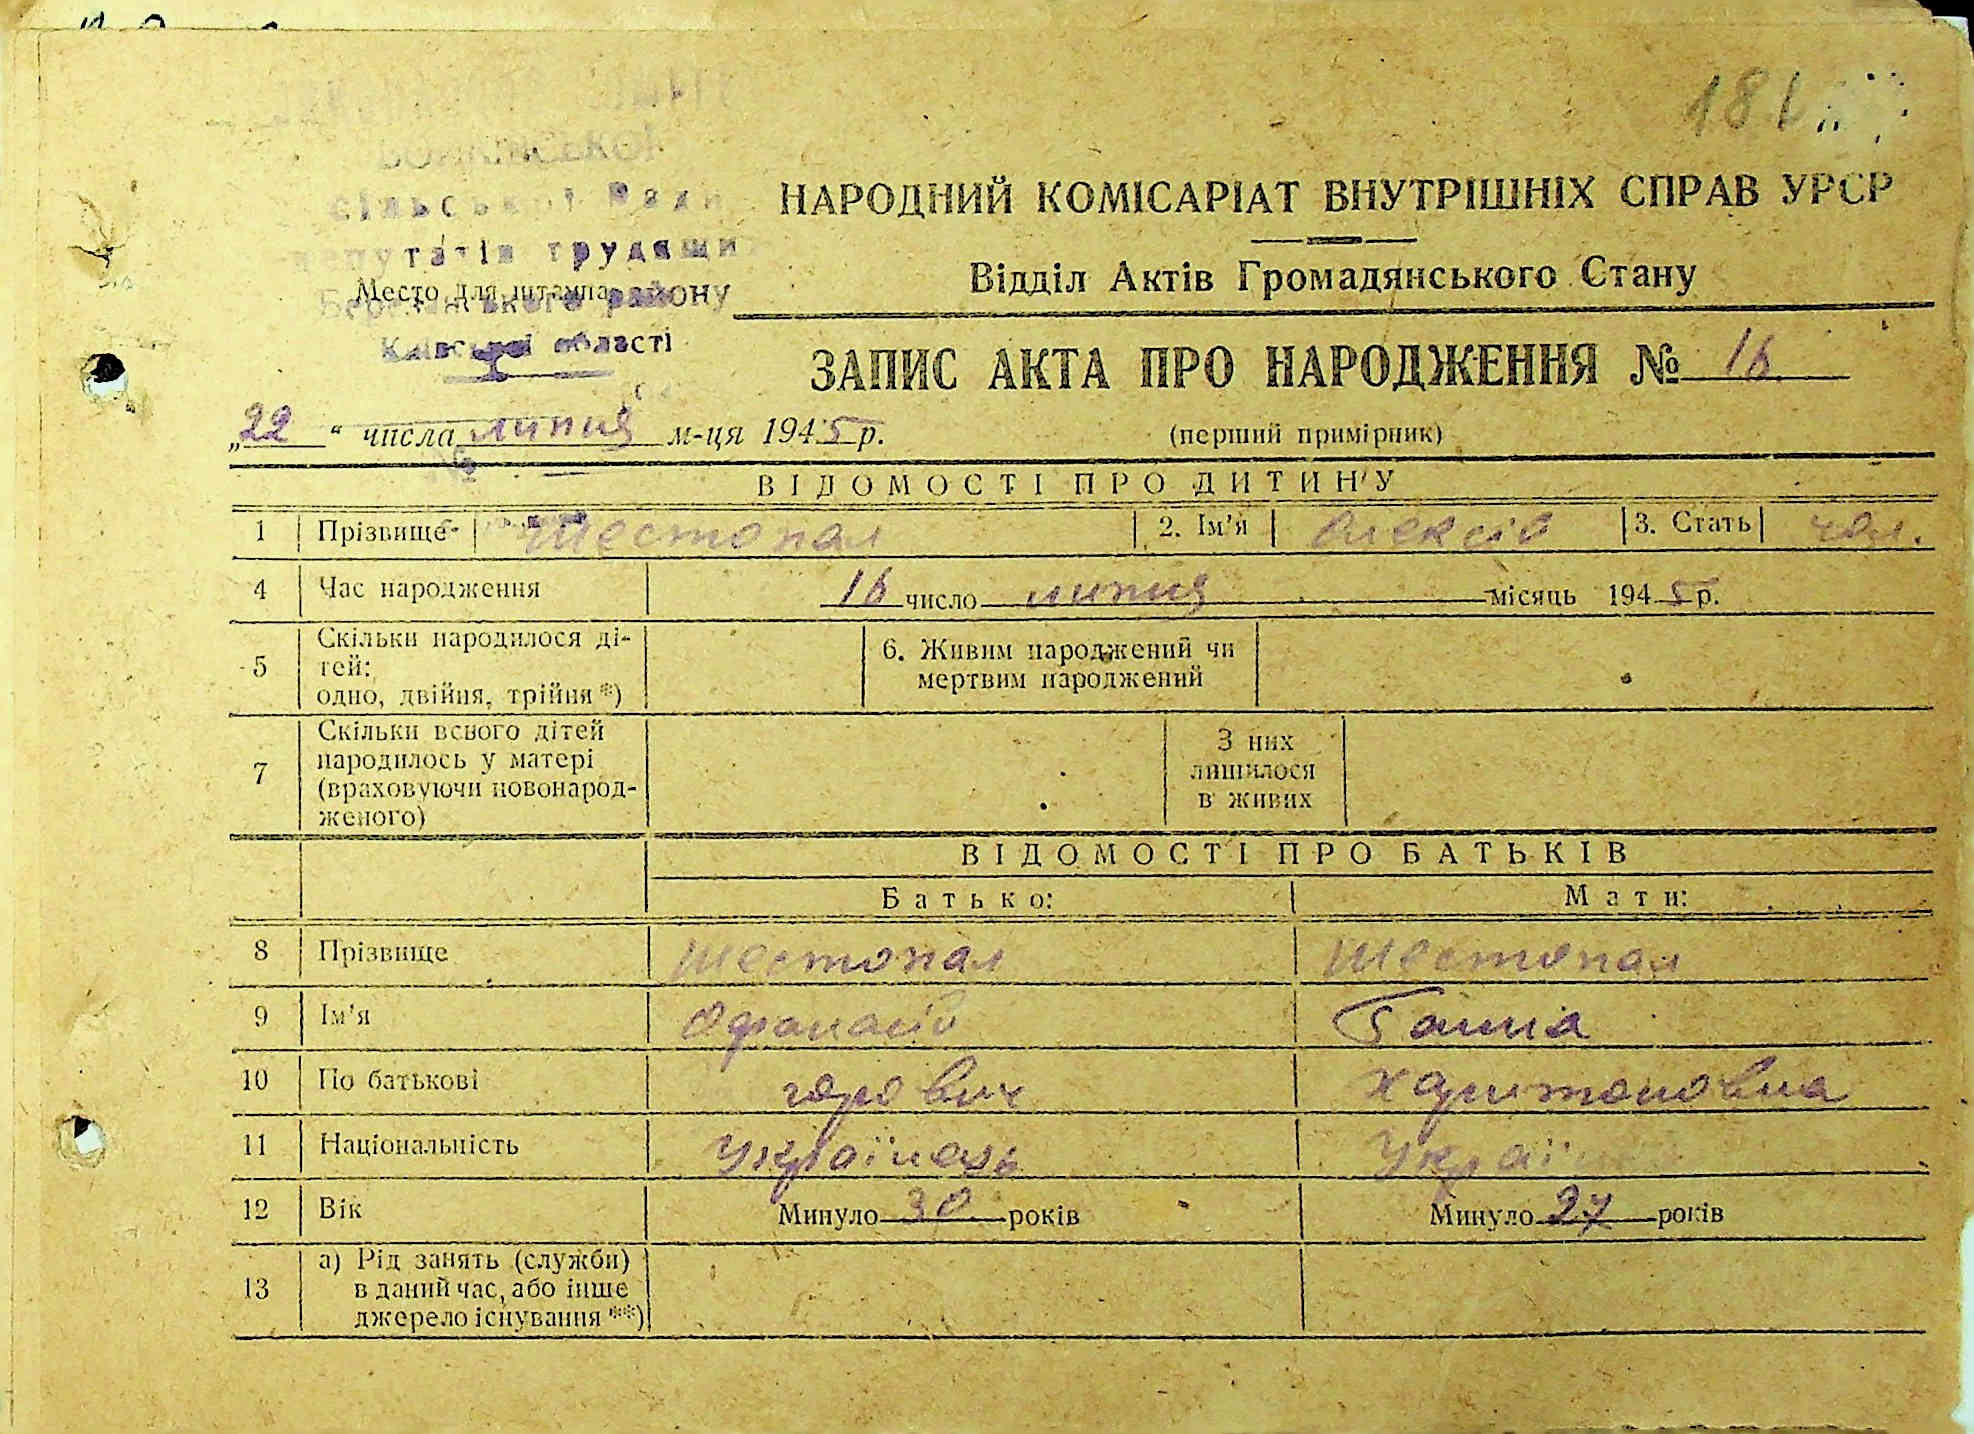 181
сільської Ради
депутатів трудящих
Место для штампа
району
Київської області
НАРОДНИЙ КОМІСАРІАТ ВНУТРІШНІХ СПРАВ УРСР
Відділ Актів Громадянського Стану
ЗАПИС АКТА ПРО НАРОДЖЕННЯ № 16
„22“ числа липня м-ця 1945 р.
(перший примірник)
ВІДОМОСТІ ПРО ДИТИНУ
1 Прізвище Шестопал 2. Ім'я Олексій 3. Стать чол.
4 Час народження 16 число липня місяць 1945 р.
5 Скільки народилося ді-
тей:
одно, двійня, трійня *)
6. Живим народжений чи
мертвим народжений
7 Скільки всього дітей
народилось у матері
(враховуючи новонарод-
женого)
З них
лишилося
в живих
ВІДОМОСТІ ПРО БАТЬКІВ
Батько: Мати:
8 Прізвище Шестопал Шестопал
9 Ім'я Офанасій Ганна
10 По батькові Харитоновна
11 Національність Українець Украї
12 Вік Минуло 30 років Минуло 27 років
13 а) Рід занять (служби)
в даний час, або інше
джерело існування **)